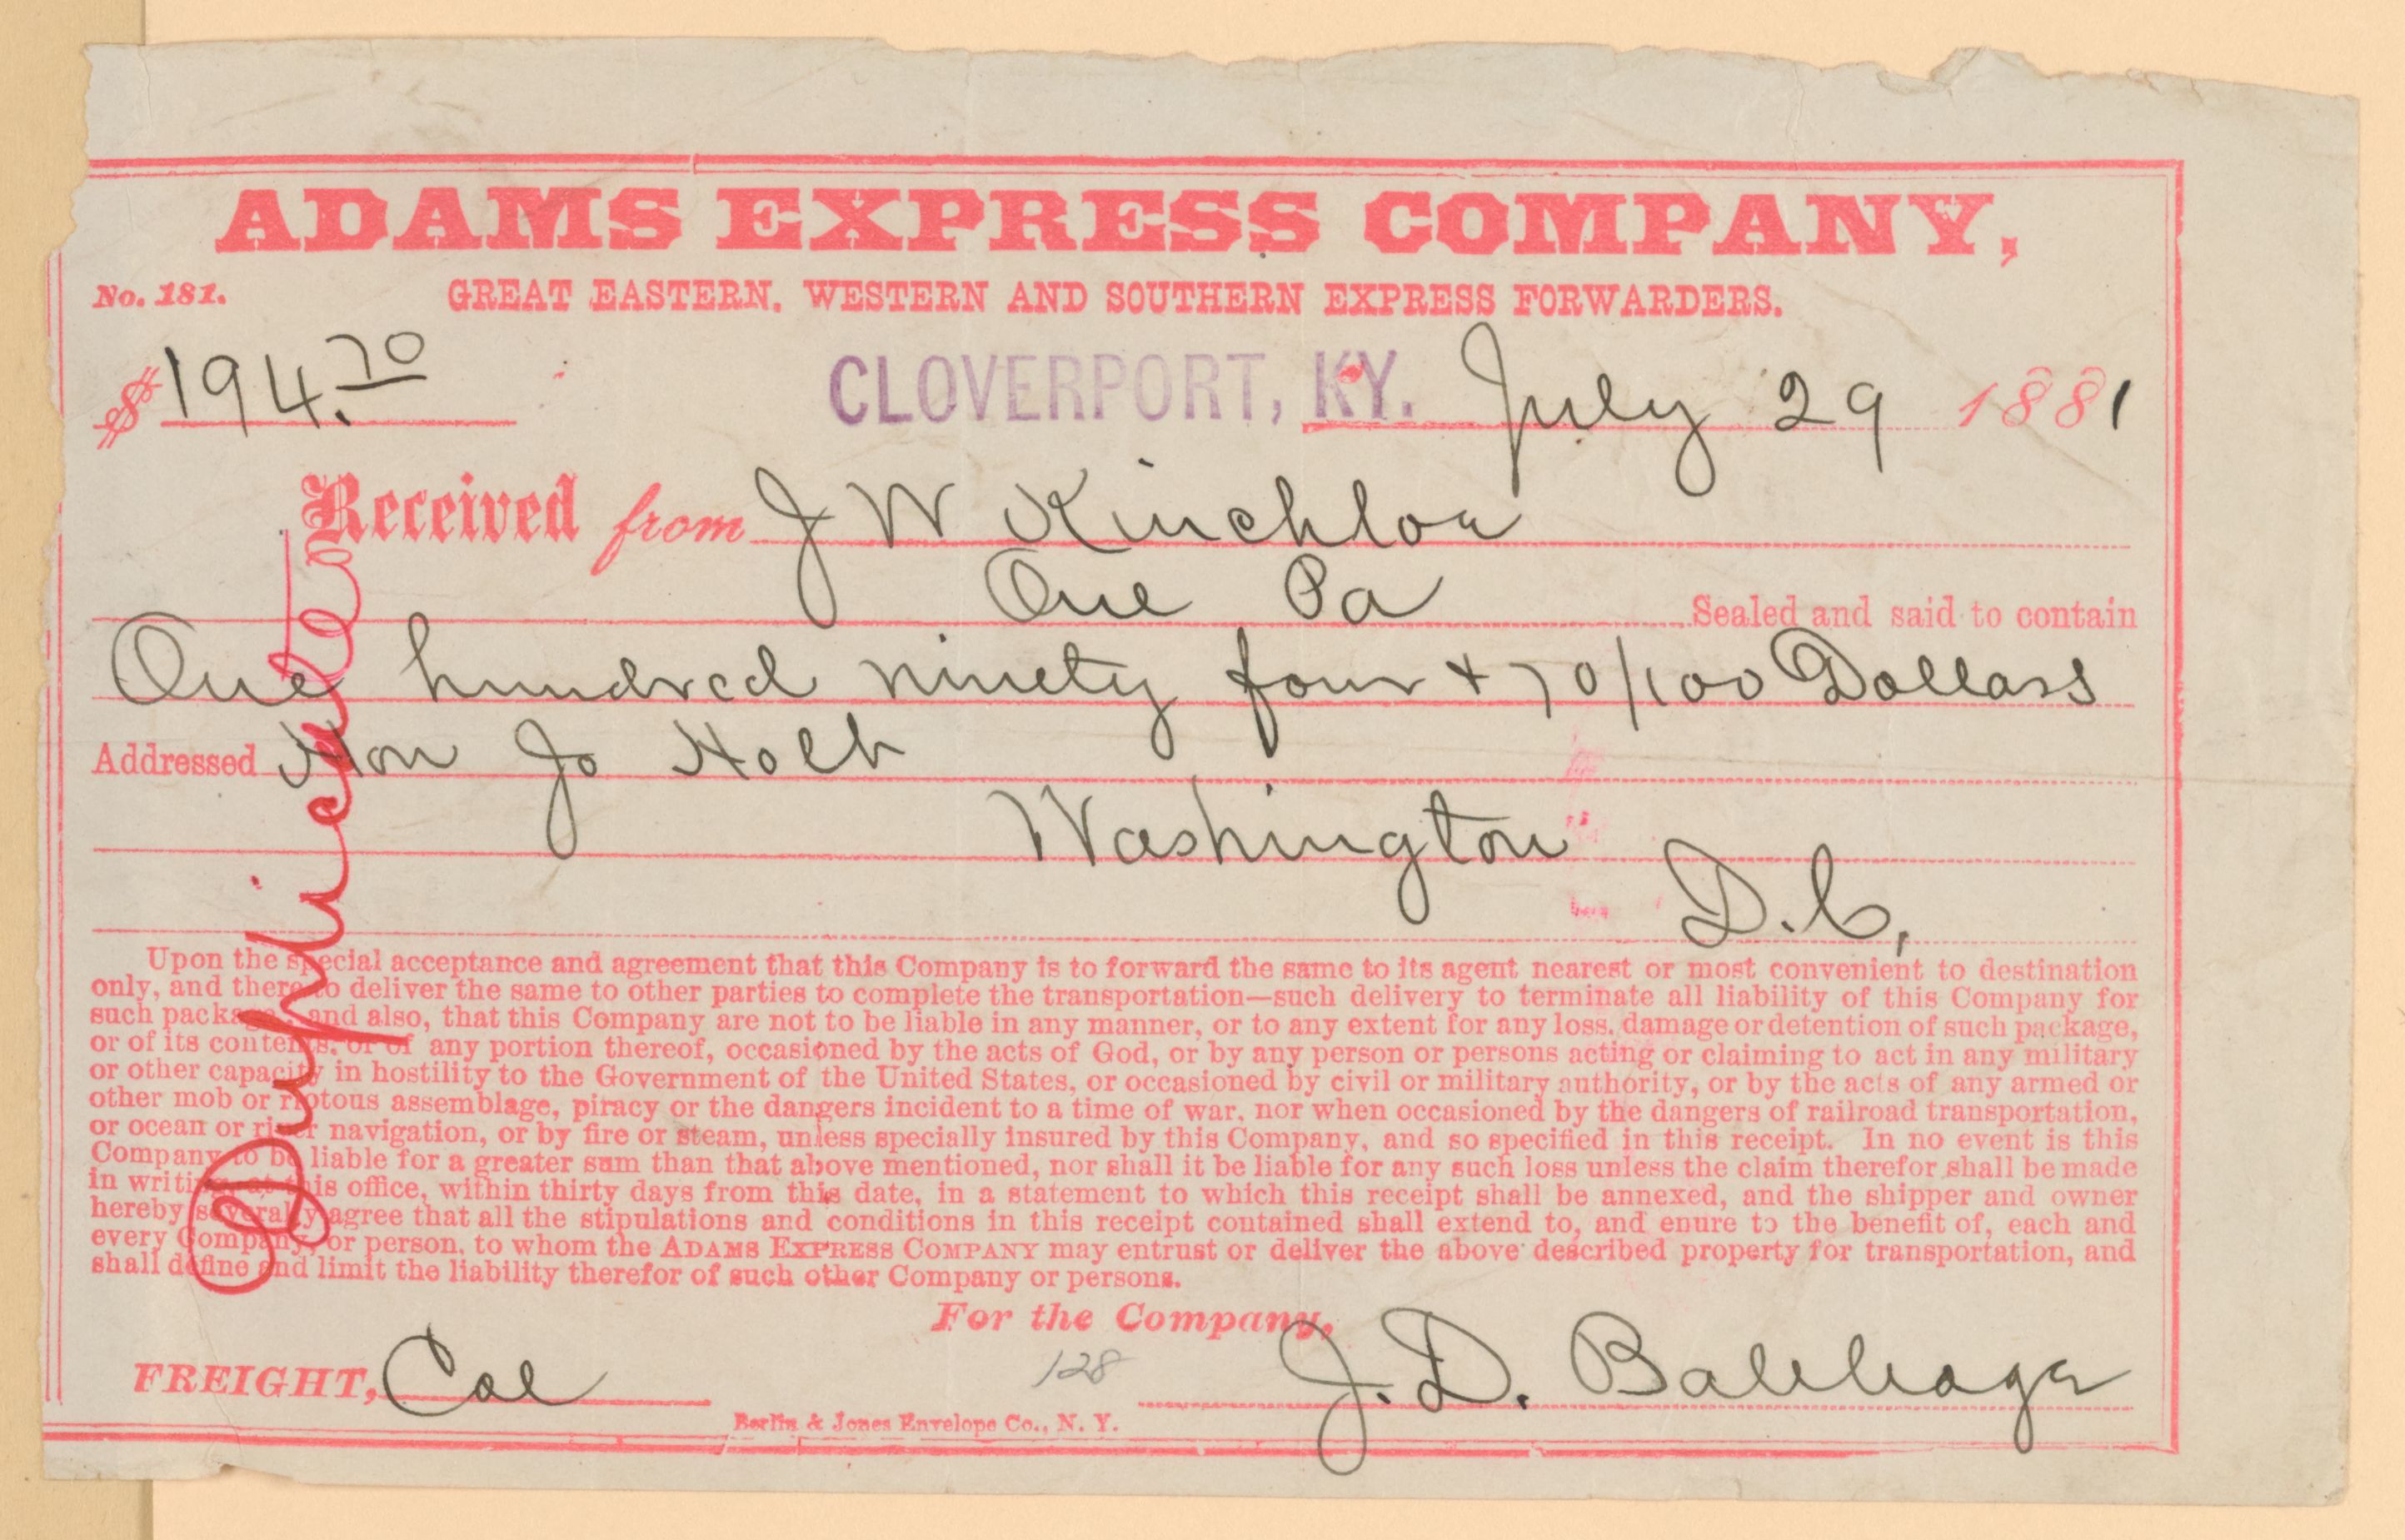 ADAMS EXPRESS COMPANY,
No. 181. GREAT EASTERN, WESTERN AND SOUTHERN EXPRESS FORWARDERS.
$194.70 CLOVERPORT, KY. July 29 1881
Received from J W Kinchloe
One Pa Sealed and said to contain
One hundred ninety four + 70/100 Dollars
Addressed Hon Jo Holt
Washington
D.C,
Duplicate
Upon the special acceptance and agreement that this Company is to forward the same to its agent nearest or most convenient to destination
only, and there to deliver the same to other parties to complete the transportation—such delivery to terminate all liability of this Company for
such package; and also, that this Company are not to be liable in any manner, or to any extent for any loss, damage or detention of such package,
or of its contents, or of any portion thereof, occasioned by the acts of God, or by any person or persons acting or claiming to act in any military
or other capacity in hostility to the Government of the United States, or occasioned by civil or military authority, or by the acts of any armed or
other mob or riotous assemblage, piracy or the dangers incident to a time of war, nor when occasioned by the dangers of railroad transportation,
or ocean or river navigation, or by fire or steam, unless specially insured by this Company, and so specified in this receipt. In no event is this
Company to be liable for a greater sum than that above mentioned, nor shall it be liable for any such loss unless the claim therefor shall be made
in writing, at this office, within thirty days from this date, in a statement to which this receipt shall be annexed, and the shipper and owner
hereby severally agree that all the stipulations and conditions in this receipt contained shall extend to, and enure to the benefit of, each and
every Company, or person, to whom the ADAMS EXPRESS COMPANY may entrust or deliver the above described property for transportation, and
shall define and limit the liability therefor of such other Company or persons.
For the Company,
FREIGHT, Col 128 J. D. Babbage
Berlin & Jones Envelope Co., N. Y.